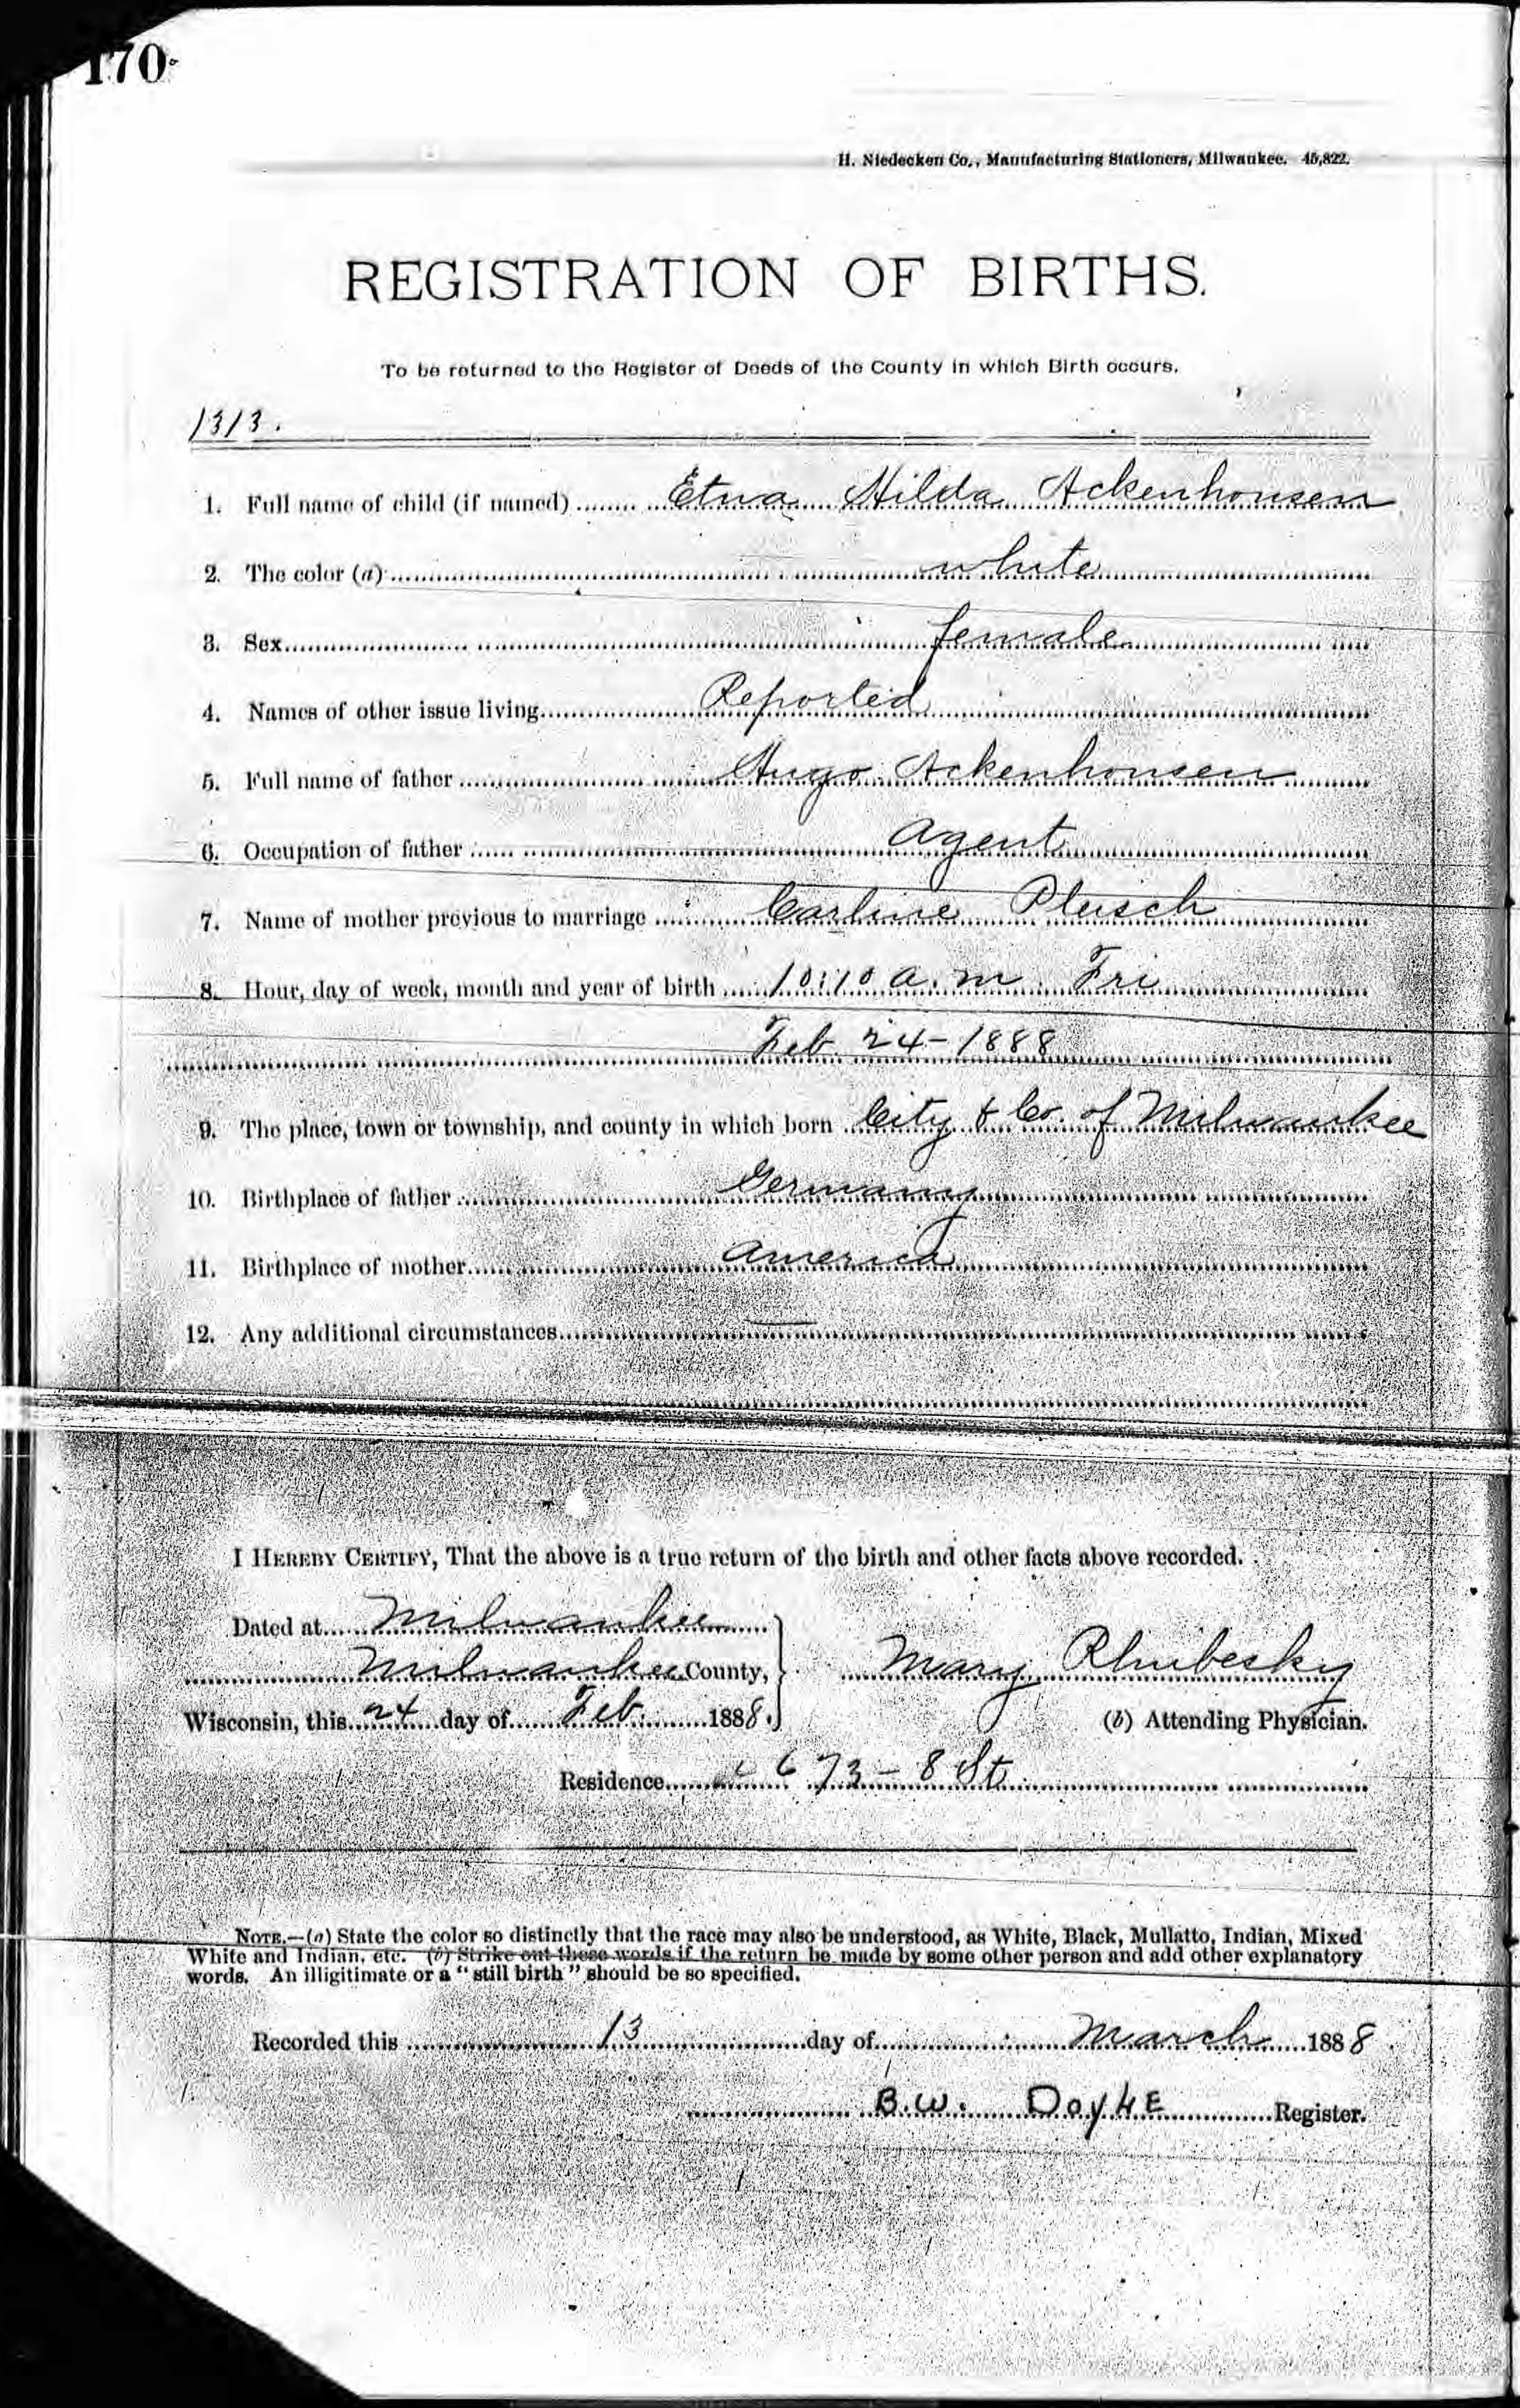 170
H. Niedecken Co., Manufacturing Stationers, Milwaukee. 45,822.
REGISTRATION OF BIRTHS.
To be returned to the Register of Deeds of the County in which Birth occurs.
1313.
1. Full name of child (if named) Etna Hilda Ackenhousen
2. The color (a) white
3. Sex female
4. Names of other issue living Reported
5. Full name of father Hugo Ackenhousen
6. Occupation of father agent
7. Name of mother previous to marriage Carline Pleisch
8. Hour, day of week, month and year of birth 10:10 a.m. Fri
Feb. 24-1888
9. The place, town or township, and county in which born City & Co. of Milwaukee
10. Birthplace of father Germany
11. Birthplace of mother America
12. Any additional circumstances —
I HEREBY CERTIFY, That the above is a true return of the birth and other facts above recorded.
Dated at Milwaukee
Milwaukee County,
Mary Rhubesky
Wisconsin, this 24 day of Feb. 1888.
(b) Attending Physician.
Residence 673 - 8 St.
NOTE.—(a) State the color so distinctly that the race may also be understood, as White, Black, Mullatto, Indian, Mixed
White and Indian, etc. (b) Strike out these words if the return be made by some other person and add other explanatory
words. An illigitimate or a "still birth" should be so specified.
Recorded this 13 day of March 1888
B.W. DoyHE Register.